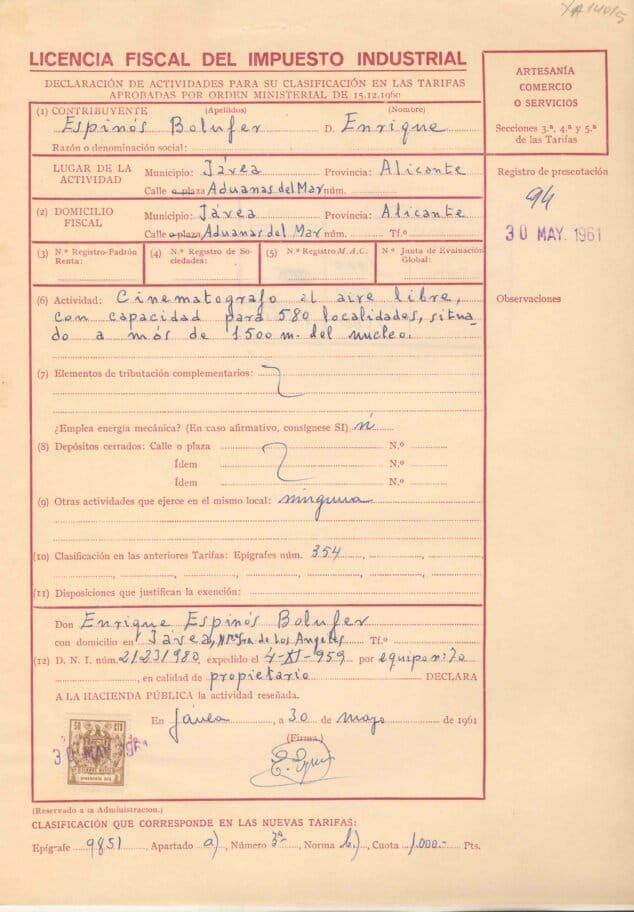 XA 140/5
LICENCIA FISCAL DEL IMPUESTO INDUSTRIAL
DECLARACIÓN DE ACTIVIDADES PARA SU CLASIFICACIÓN EN LAS TARIFAS
APROBADAS POR ORDEN MINISTERIAL DE 15.12.1960
ARTESANÍA
COMERCIO
O SERVICIOS
Secciones 3.ª, 4.ª y 5.ª
de las Tarifas
(1) CONTRIBUYENTE (Apellidos) (Nombre)
Espinós Bolufer D. Enrique
Razón o denominación social:
LUGAR DE LA ACTIVIDAD Municipio: Jávea Provincia: Alicante
Calle o plaza Aduanas del Mar núm.
Registro de presentación
94
30 MAY. 1961
(2) DOMICILIO FISCAL Municipio: Jávea Provincia: Alicante
Calle o plaza Aduanas del Mar núm. Tf.º
(3) N.º Registro-Padrón Renta: (4) N.º Registro de Sociedades: (5) N.º Registro M.A.C. N.º Junta de Evaluación Global:
(6) Actividad: Cinematografo al aire libre,
con capacidad para 580 localidades, situa-
do a más de 1.500 m. del nucleo.
Observaciones
(7) Elementos de tributación complementarios:
¿Emplea energía mecánica? (En caso afirmativo, consígnese SI)
(8) Depósitos cerrados: Calle o plaza N.º
Ídem N.º
Ídem N.º
(9) Otras actividades que ejerce en el mismo local: ninguna
(10) Clasificación en las anteriores Tarifas: Epígrafes núm. 354
(11) Disposiciones que justifican la exención:
Don Enrique Espinós Bolufer
con domicilio en Jávea, Ntra. Sra. de Los Angeles Tf.º
(12) D. N. I. núm. 21231980, expedido el 4-XI-959 por equipo n: 70
, en calidad de propietario DECLARA
A LA HACIENDA PÚBLICA la actividad reseñada.
En Jávea, a 30 de mayo de 1961
(Firma)
50 CTS
30 MAY 1961
(Reservado a la Administracion.)
CLASIFICACIÓN QUE CORRESPONDE EN LAS NUEVAS TARIFAS:
Epígrafe 9851, Apartado a), Número 3º, Norma b), Cuota 1.000.- Pts.